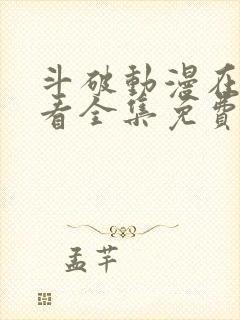 斗破動漫在
看全集免費
孟芊